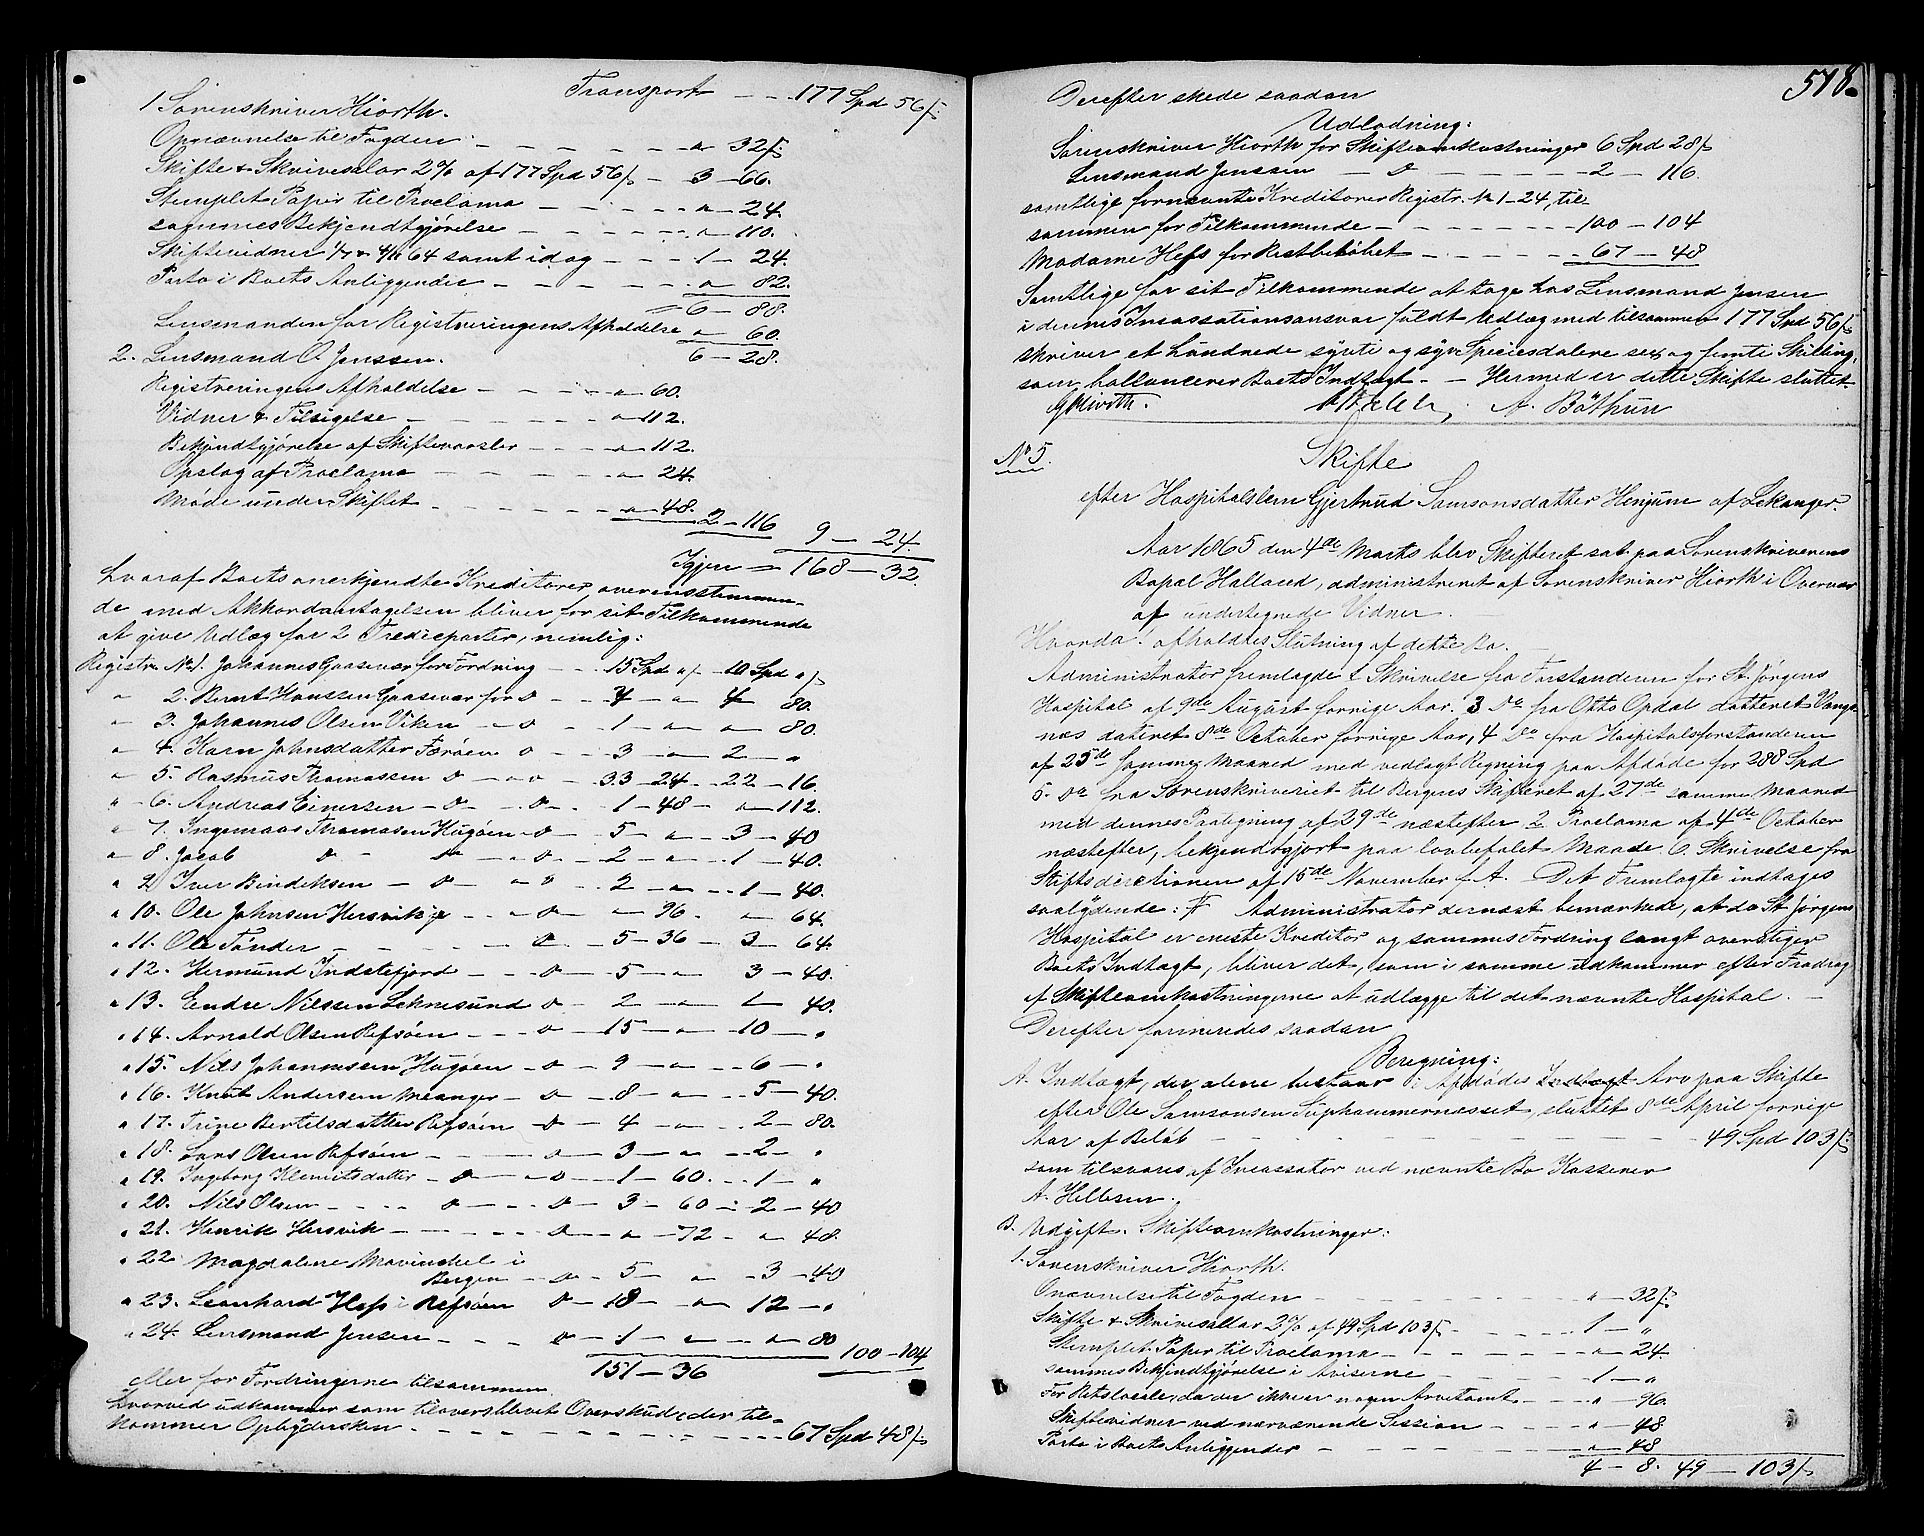 Transport - - 177 Spd 56/-
1 Sorenskriver Hiorth.
Opnævnelse til Fogden - - - - " 32/-
Skifte & Skrivesalær 2% af 177 Spd 56/- - 3 - 66.
Stemplet Papir til Proclama - - - - " - 24.
sammes Bekjendtgjørelse - - - - " - 110.
Skiftevidner 1/7 & 4/11 64 samt idag - - - 1 - 24.
Porto i Boets Anliggender - - - - " 82.
6 - 88.
Lensmanden for Registreringens Afholdelse " 60.
6 - 28.
2. Lensmand O Jenssen.
Registreringens Afholdelse - - - " - 60.
Vidner & Tilsigelse - - - - " - 112.
Bekjendtgjørelse af Skiftevarsler - - - " - 112.
Opslag af Proclama - - - " - 24.
Møde under Skiftet - - - - " - 48.
2 - 116 9 - 24.
Igjen = 168 - 32.
hvoraf Boets anerkjendte Kreditorer, overensstemmen-
de med Akkordantagelsen bliver for sit Tilkommende
at give Udlæg for 2 Tredieparter, nemlig:
Registr. No 1. Johannes Gaasevær for Fordring - - 15 Spd "/- 10 Spd "/-
" 2. Bernt Hanssen Gaasevær for do - - 7 - " 4 80.
" 3. Johannes Olsen Viken - - do - 1 - " " 80.
" 4. Karn Johnsdatter Færøen do - - 3 - " 2 - "
" 5. Rasmus Thomassen do - - " do - 33 - 24 - 22 - 16.
" 6. Andreas Einersen - do - - do - 1 - 48 - " - 112.
" 7. Ingemaas Thomasen Hugøen - do - 5 - " - 3 - 40
" 8. Jacob do - do - " do - 2 - " - 1 - 40.
" 9 Iver Bendiksen - do - " do - 2 - " - 1 - 40.
" 10. Ole Johnsen Hersvikje - - " do - " - 96. " - 64.
" 11. Ole Tønder - - - - do - 5 - 36 - 3 - 64.
" 12. Hermund Indstefjord - - do - 5 - " 3 - 40.
" 13. Endre Nilssen Leknesund do - 2 - " - 1 - 40.
" 14. Arnold Olsen Refsøen - - do - 15 - " - 10 - "
" 15. Nils Johannessen Hugøen - do - 9 - " - 6 - "
" 16. Knut Andersen Meanger - do - 8 - " - 5 - 40.
" 17. Trine Bertilsdatter Refsøen - do - 4 - " - 2 - 80.
" 18. Lars Olsen Refsøen - - - do - 3 - " - 2 - "
" 19. Ingeborg Klemitsdatter - do - do - 1 - 60. - 1 - "
" 20. Nils Olsen - - - do - - do - 3 - 60 - 2 - 40
" 21. Henrik Hersvik - - - - do - " - 72 - " 48.
" 22 Magdalene i
Bergen - do - 5 - " - 3 - 40
" 23. Leonhard Hess i Refsøen do - 18 - " - 12 - "
" 24. Lensmand Jensen - - - do - 1 - " - " 80 100 - 104
151 - 36
eller for Fordringerne tilsammen
hvorved udkommer som tiloversblevet Overskud, der til-
kommer Opbydersken - - - - - 67 Spd 48/-
578.
Derefter skede saadan
Udlodning:
Sorenskriver Hiorth for Skifteomkostninger 6 Spd 28/-
Lensmand Jenssen - do - - - - 2 - 116.
samtlige fornævnte Kreditorer Registr. No 1-24, til-
sammen for Tilkommende - - - - 100 - 104
Madame Hess for Restbeløbet - - - - 67 - 48
Samtlige for sit Tilkommende at tage hos Lensmand Jensen
i dennes Incassationsansvar fuldt Udlæg med tilsammen 177 Spd 56/-
skriver et hundrede sytti og syv Speciesdalere sex og femti Skilling,
som ballancerer Boets Indtægt. - - Hermed er dette Skifte sluttet.
GHiorth. A. Bøthun
No 5. Skifte
efter Hospitalslem Gjertrud Samsonsdatter Henjum af Lekanger.
Aar 1865 den 4de Marts blev Skifteret sat paa Sorenskriverens
Bopæl Hallaced, administreret af Sorenskriver Hiorth i Overvær
af undertegnede Vidner.
Hvorda: afholdtes Slutning af dette Bo. -
Administrator fremlagde 1 Skrivelse fra Forstanderen for St. Jørgens
Hospital af 9de August forrige Aar. 3 Do fra Otto Opdal datteret Vangs
næs dateret 8de October forrige Aar, 4 Do fra Hospitalsforstanderen
af 25de samme Maaned med vedlagt Regning paa Afdøde for 288 Spd
5. Do fra Sorenskriveriet til Bergens Skifteret af 27de samme Maaned
med dennes Paategning af 29de næstefter 2 Proclama af 4de October
næstefter, bekjendtgjort paa lovbefalet Maade. 6. Skrivelse fra
Stiftsdirectionen af 15de November f. A. Det Fremlagte indtages
saalydende: # Administrator dernæst bemærkede, at da St. Jørgens
Hospital er eneste Kreditor og sammes Fordring langt overstiger
Boets Indtægt, bliver det, som i samme udkommer efter Fradrag
af Skifteomkostningerne at udlægge til det nævnte Hospital. -
Derefter formeredes saadan
Beregning:
A. Indtægt, der alene bestaar i Afdødes Indtægt Arv paa Skifte
efter Ole Samsonsen Siuphammernæsset, sluttet 8de April forrige
Aar af Beløb - - - - - 49 Spd 103/-
som tilsvares af Incassator ved nævnte Bo Kasserer
A. Hellesen.
B. Udgift. Skifteomkostninger:
1. Sorenskriver Hiorth.
Opnævnelse til Fogden - - - - " - 32/-
Skifte & Skrivesallær 2% af 49 Spd 103/- - - - 1 - "
Stemplet Papir til Proclama - - - - " - 24
sammes Bekjendtgjørelse i Aviserne - - - 1 - "
For Retslocale, da der ikke er nogen Arvetomt - - " - 96.
Skiftevidner ved nærværende Session - - - " - 48
Porto i Boets Anliggender - - - - " - 48
4 - 8. 49 - 103/-